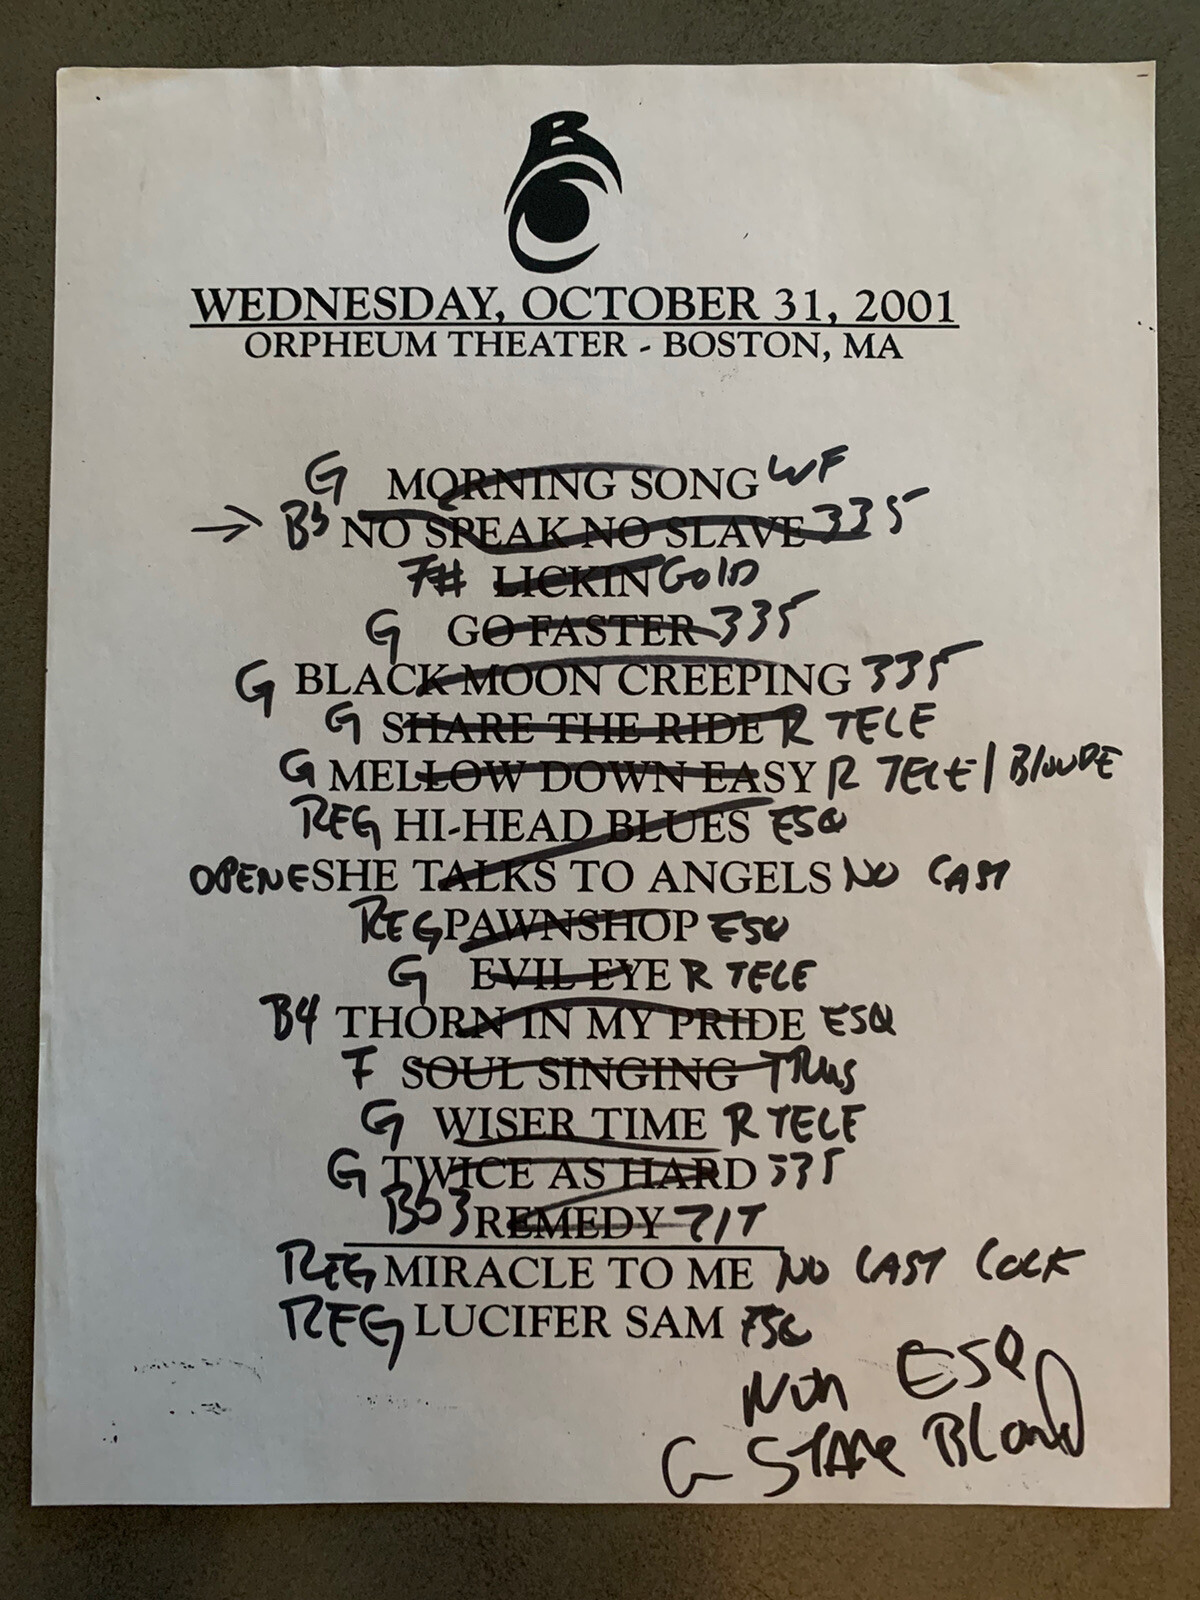 B
WEDNESDAY, OCTOBER 31, 2001
ORPHEUM THEATER - BOSTON, MA
G MORNING SONG WF
→ B3 NO SPEAK NO SLAVE 335
F# LICKIN GOLD
G GO FASTER 335
G BLACK MOON CREEPING 335
G SHARE THE RIDE R TELE
G MELLOW DOWN EASY R TELE / BLONDE
REG HI-HEAD BLUES ESQ
OPEN E SHE TALKS TO ANGELS NO CAST
REG PAWNSHOP ESQ
G EVIL EYE R TELE
B4 THORN IN MY PRIDE ESQ
F SOUL SINGING
G WISER TIME R TELE
G TWICE AS HARD 335
REMEDY
REG MIRACLE TO ME NO CAST
REG LUCIFER SAM ESQ
ESQ
G